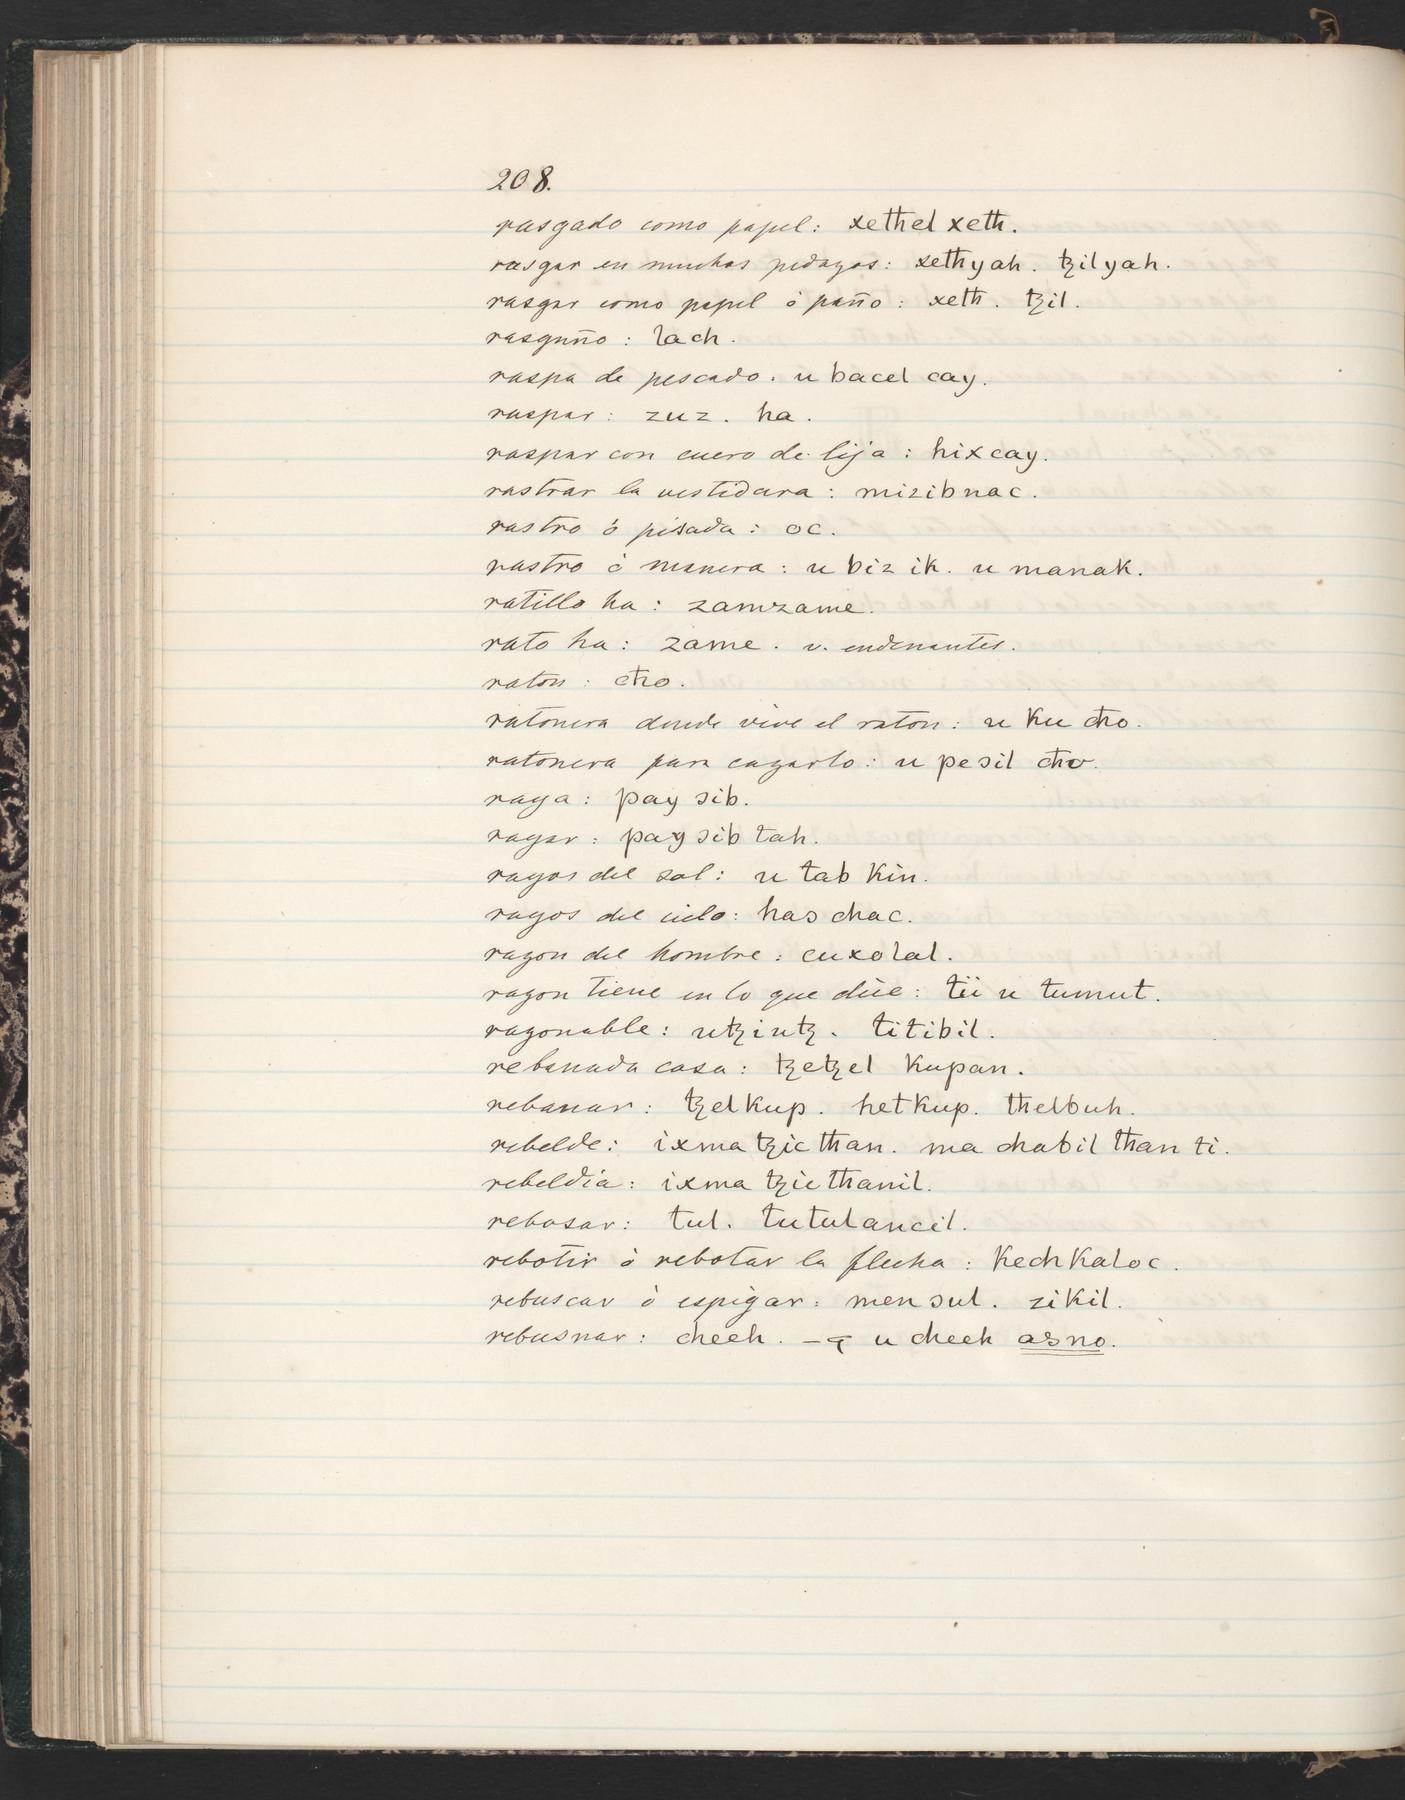 208.
rasgado como papel: xetħel xetħ.
rasgar en muchos pedazos: xetħyah. ꜩilyah.
rasgar como papel ó paño: xetħ. ꜩil.
rasguño: lach.
raspa de pescado. u bacel cay.
raspar: zuz. ha.
raspar con cuero de lija: hixcay.
rastrar la vestidura: mizibnac.
rastro ó pisada: oc.
rastro ó manera: u biz ik. u manak.
ratillo ha: zamzame.
rato ha: zame. v. endenantes.
raton: cħo.
ratonera donde vive el raton: u ku cħo.
ratonera para cazarlo: u pesil cħo.
raya: pay sib.
rayar: pay sib tah.
rayos del sol: u tab kin.
rayos del cielo: has chac.
razon del hombre: cuxolal.
razon tiene en lo que dice: tii u tumut.
razonable: uꜩiuꜩ. titibil.
rebanada cosa: ꜩeꜩel kupan.
rebanar: ꜩelkup. hetkup. tħelbuh.
rebelde: ixma ꜩic tħan. ma chabil tħan ti.
rebeldia: ixma ꜩic tħanil.
rebosar: tul. tutulancil.
rebotir ó rebotar la flecha: kechkaloc.
rebuscar ó espigar: men sul. zikil.
rebusnar: cheeh. — u cheeh asno.